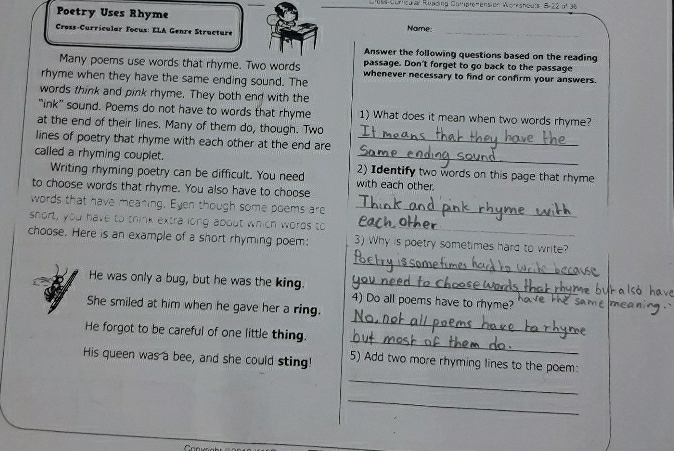 Cross-Curricular Reading Comprehension Worksheets: E-22 of 36
Poetry Uses Rhyme
Cross-Curricular Focus: ELA Genre Structure
Name:
Many poems use words that rhyme. Two words
rhyme when they have the same ending sound. The
words think and pink rhyme. They both end with the
"ink" sound. Poems do not have to words that rhyme
at the end of their lines. Many of them do, though. Two
lines of poetry that rhyme with each other at the end are
called a rhyming couplet.
Writing rhyming poetry can be difficult. You need
to choose words that rhyme. You also have to choose
words that have meaning. Even though some poems are
short, you have to think extra long about which words to
choose. Here is an example of a short rhyming poem:
He was only a bug, but he was the king.
She smiled at him when he gave her a ring.
He forgot to be careful of one little thing.
His queen was a bee, and she could sting!
Answer the following questions based on the reading
passage. Don't forget to go back to the passage
whenever necessary to find or confirm your answers.
1) What does it mean when two words rhyme?
It means that they have the
Same ending sound.
2) Identify two words on this page that rhyme
with each other.
Think and pink rhyme with
each other
3) Why is poetry sometimes hard to write?
Poetry is sometimes hard to write because
you need to choose words that rhyme but also have
have the same meaning.
4) Do all poems have to rhyme?
No, not all poems have to rhyme
but most of them do.
5) Add two more rhyming lines to the poem:
Copyright